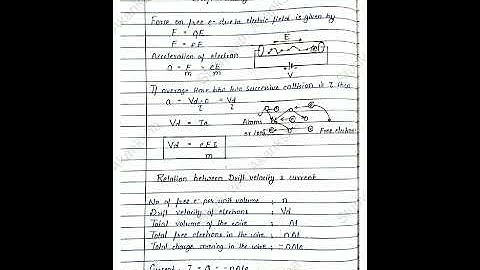 Force on free e- due to electric field is given by
F = qE
F = eE
E
Acceleration of electron
a = F/m = eE/m
V
If average time b/w two successive collision is τ then
a = Vd - 0 / τ = Vd / τ
Vd = τa
Atoms
or ions
Free electron
Vd = eEτ / m
Relation between Drift velocity & current
No of free e- per unit volume : n
Drift velocity of electrons : Vd
Total volume of the wire : Al
Total free electrons in the wire : nAl
Total charge moving in the wire : -nAle
Current, I = Q = -nAle